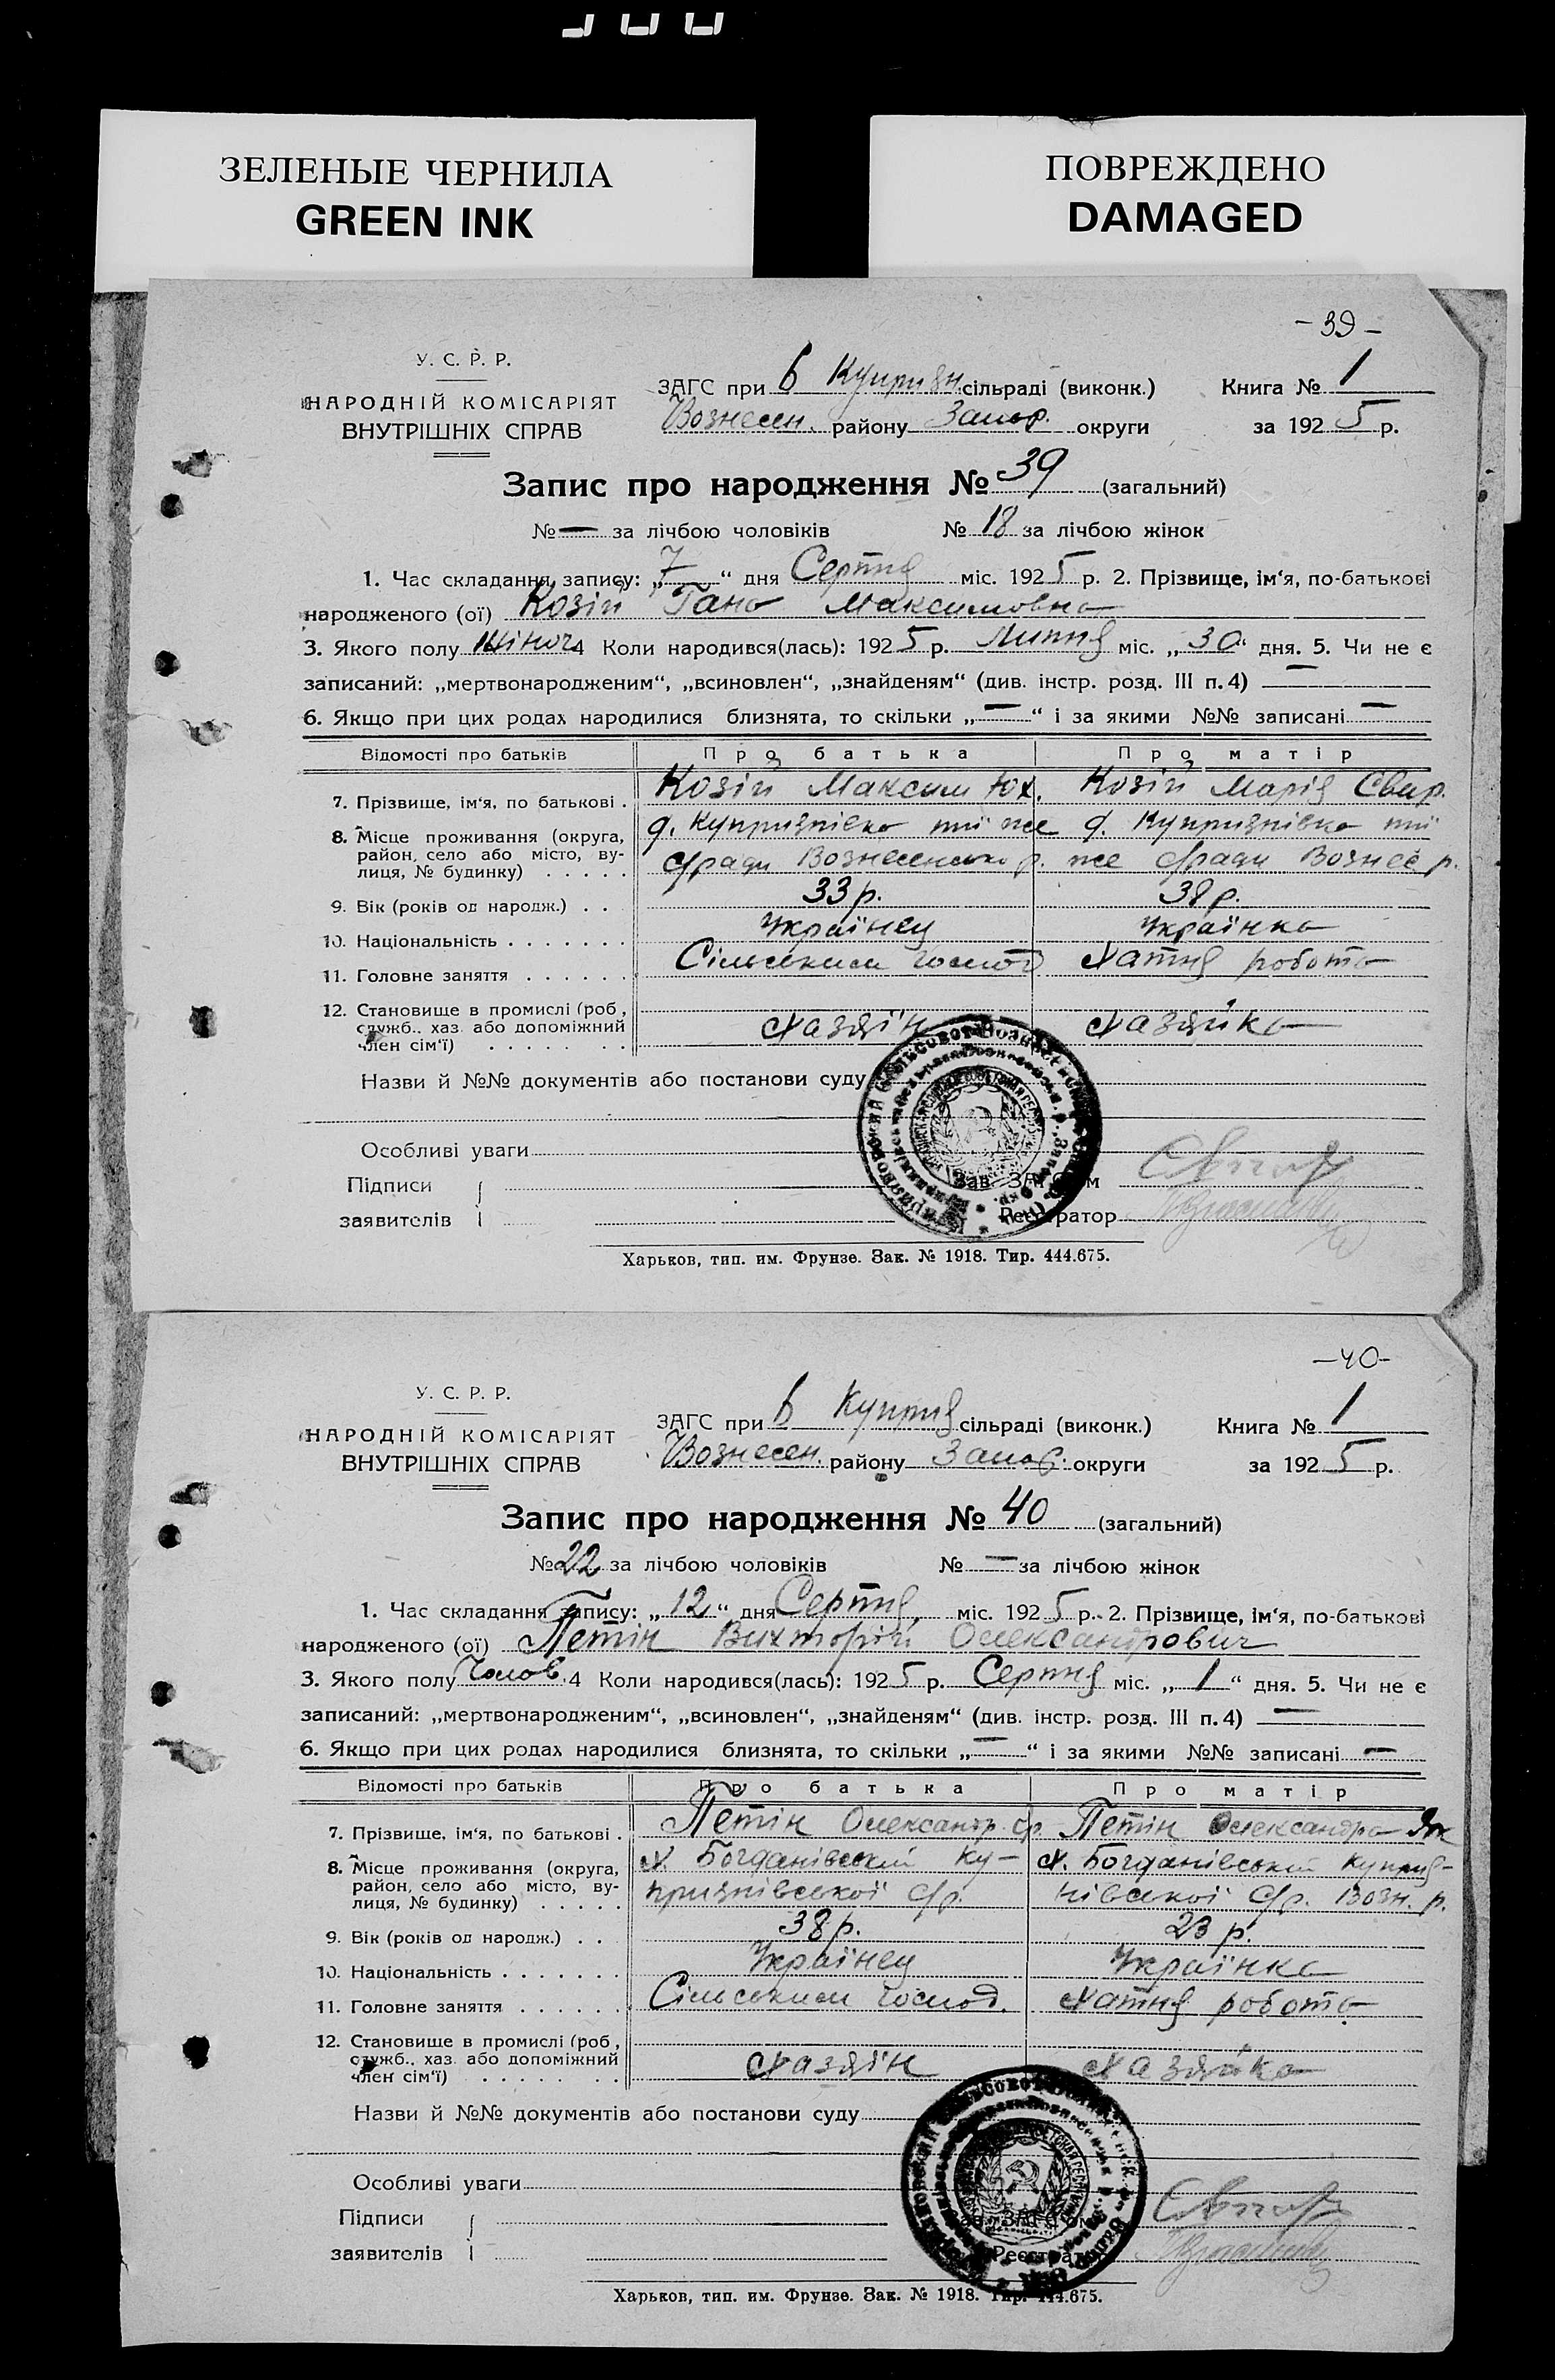 ЗЕЛЕНЫЕ ЧЕРНИЛА
GREEN INK
ПОВРЕЖДЕНО
DAMAGED
- 39 -
У. С. Р. Р.
НАРОДНІЙ КОМІСАРІЯТ
ВНУТРІШНІХ СПРАВ
ЗАГС при В Куприян. сільраді (виконк.) Книга № 1
Вознесен. району Запор. округи за 1925 р.
Запис про народження № 39 (загальний)
№ — за лічбою чоловіків № 18 за лічбою жінок
1. Час складання запису: „7“ дня Серпня міс. 1925 р. 2. Прізвище, ім‘я, по-батькові
народженого (ої) Козій Гана Максимовна
3. Якого полу жіноч. 4 Коли народився(лась): 1925 р. Липня міс. „30“ дня. 5. Чи не є
записаний: „мертвонародженим“, „всиновлен“, „знайденям“ (див. інстр. розд. III п. 4) —
6. Якщо при цих родах народилися близнята, то скільки „—“ і за якими №№ записані —
Відомості про батьків Про батька Про матір
7. Прізвище, ім‘я, по батькові . Козій Максим Юх. Козій Марія Свир.
8. Місце проживання (округа, район, село або місто, вулиця, № будинку) . . . . . д. Купріянівка тії же с/ради Вознесенсько р. д. Купріянівка тії же с/ради Вознес р.
9. Вік (років од народж.) . . 33 р. 38 р.
10. Національність . . . . . . . Українец Українка
11. Головне заняття . . . . . . Сільським госпо Хатня робота
12. Становище в промислі (роб., служб., хаз. або допоміжний член сім‘ї) . . . . . . . . Хазяїн Хазяйка
Назви й №№ документів або постанови суду
Особливі уваги
Підписи
заявителів
Зав. ЗАГСом
Реєстратор
Харьков, тип. им. Фрунзе. Зак. № 1918. Тир. 444.675.
-40-
У. С. Р. Р.
НАРОДНІЙ КОМІСАРІЯТ
ВНУТРІШНІХ СПРАВ
ЗАГС при В Куприя сільраді (виконк.) Книга № 1
Вознесен. району Запор. округи за 1925 р.
Запис про народження № 40 (загальний)
№ 22 за лічбою чоловіків № — за лічбою жінок
1. Час складання запису: „12“ дня Серпня міс. 1925 р. 2. Прізвище, ім‘я, по-батькові
народженого (ої) Петін Вихторій Олександрович
3. Якого полу Чолов. 4 Коли народився(лась): 1925 р. Серпня міс. „1“ дня. 5. Чи не є
записаний: „мертвонародженим“, „всиновлен“, „знайденям“ (див. інстр. розд. III п. 4) —
6. Якщо при цих родах народилися близнята, то скільки „—“ і за якими №№ записані —
Відомості про батьків Про батька Про матір
7. Прізвище, ім‘я, по батькові . Петін Олександр Петін Олександра Як
8. Місце проживання (округа, район, село або місто, вулиця, № будинку) . . . . . х. Богданівський Куприянівської с/р. х. Богданівський Куприянівської с/р. Возн. р.
9. Вік (років од народж.) . . 38 р. 23 р.
10. Національність . . . . . . . Українец Українка
11. Головне заняття . . . . . . Сільським господ. Хатня робота
12. Становище в промислі (роб., служб., хаз. або допоміжний член сім‘ї) . . . . . . . . Хазяїн Хазяйка
Назви й №№ документів або постанови суду
Особливі уваги
Підписи
заявителів
Реєстратор
Харьков, тип. им. Фрунзе. Зак. № 1918. Тир. 444.675.